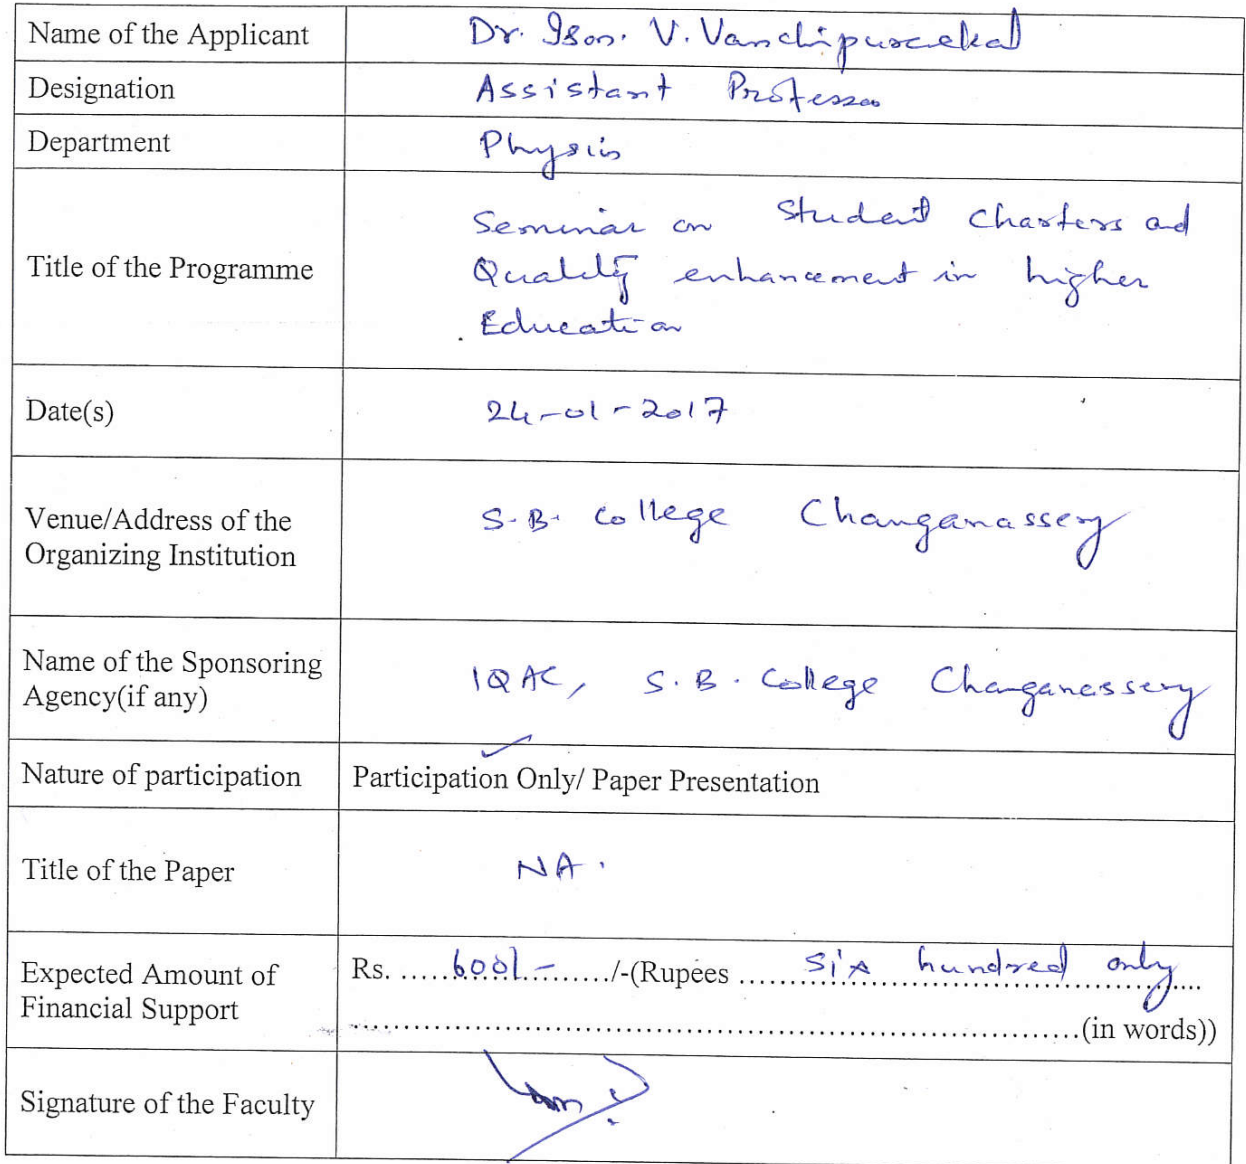 Name of the Applicant Dr. Ison. V. Vanchipurackal
Designation Assistant Professor
Department Physics
Title of the Programme
Seminar on Student Charters and
Quality enhancement in higher
Education
Date(s) 24-01-2017
Venue/Address of the
Organizing Institution
S.B. College Changanassery
Name of the Sponsoring
Agency(if any)
IQAC, S.B. College Changanassery
Nature of participation Participation Only/ Paper Presentation
Title of the Paper NA.
Expected Amount of
Financial Support
Rs. .....600/-............/-(Rupees ......Six hundred only....
......................................................................(in words))
Signature of the Faculty